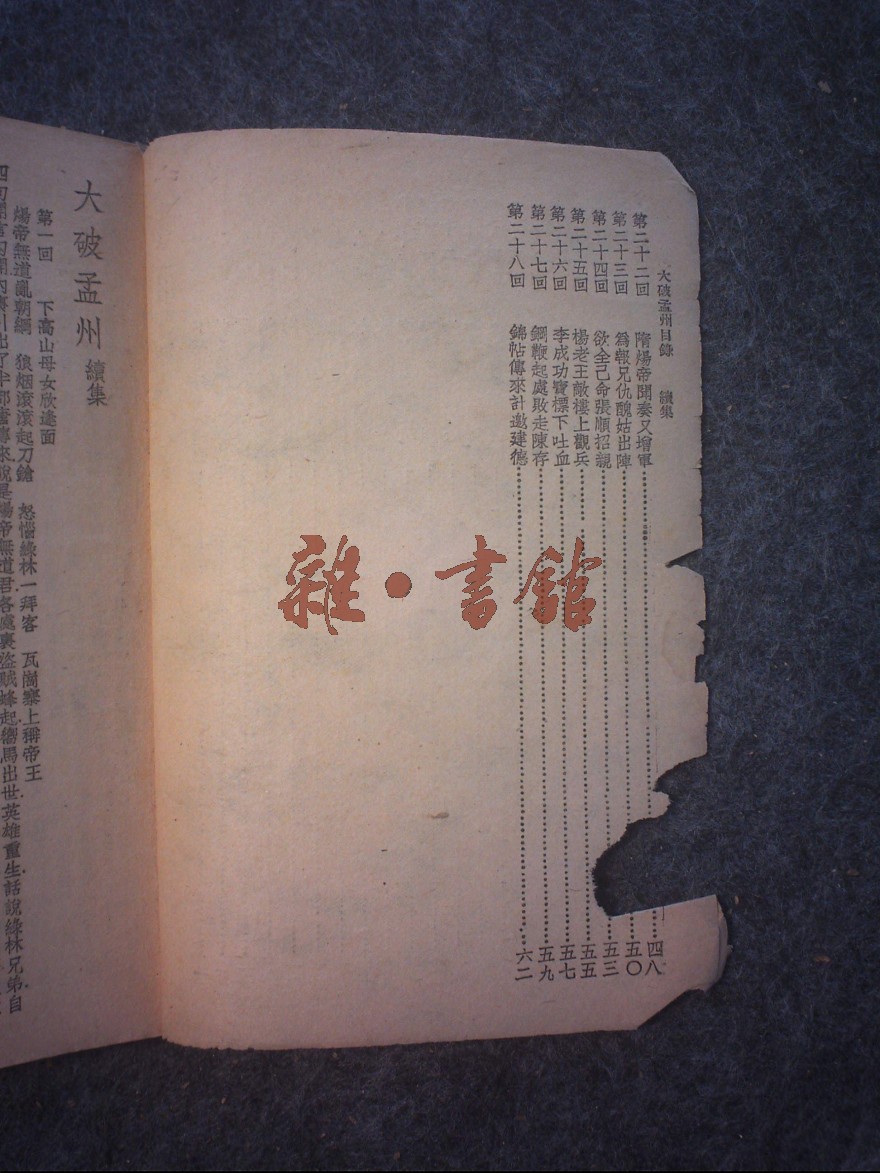 大破孟州目錄 續集
第二十二回 隋煬帝聞奏又增軍 四八
第二十三回 爲報兄仇醜姑出陣 五〇
第二十四回 欲全己命張順招親 五三
第二十五回 楊老王敵樓上觀兵 五五
第二十六回 李成功寶標下吐血 五七
第二十七回 鋼鞭起處敗走陳存 五九
第二十八回 錦帖傳來計邀建德 六二
雜·書館
大破孟州 續集
第一回 下高山母女欣逢面
煬帝無道亂朝綱 狼烟滾滾起刀鎗 怒惱綠林一拜客 瓦崗寨上稱帝王
來說是煬帝無道君各處裏盜賊蜂起響馬出世英雄重生話說綠林兄弟自